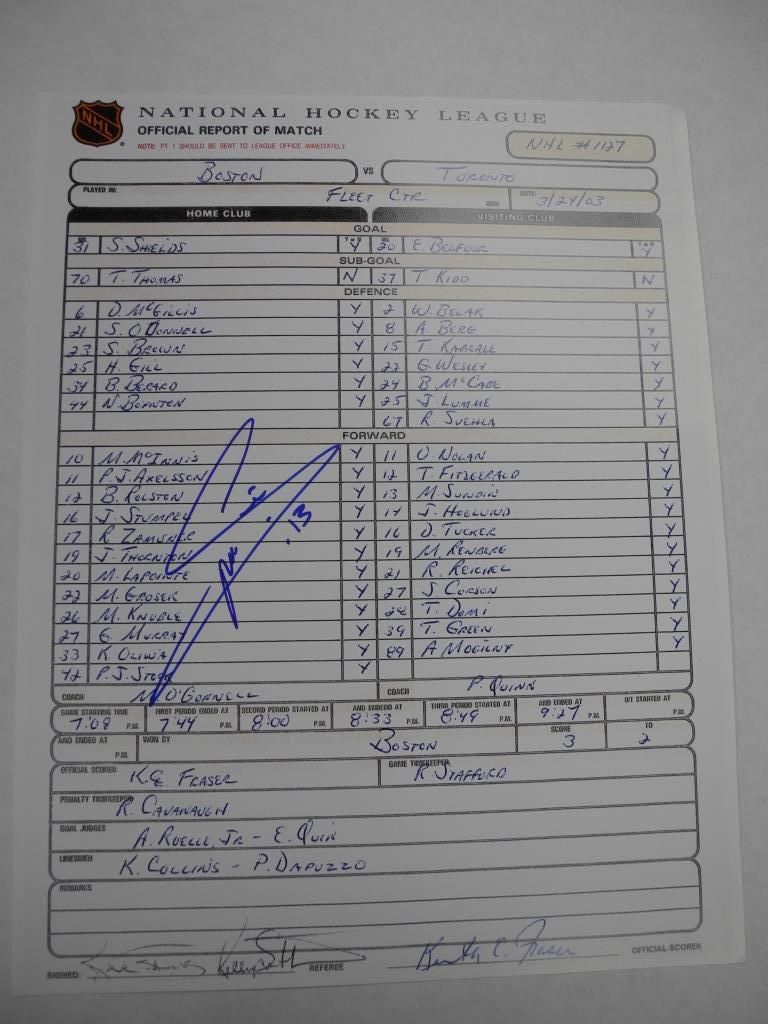 NHL NATIONAL HOCKEY LEAGUE
OFFICIAL REPORT OF MATCH
NOTE: PT 1 SHOULD BE SENT TO LEAGUE OFFICE IMMEDIATELY.
NHL #1127
BOSTON VS TORONTO
PLAYED IN: FLEET CTR DATE: 3/24/03
HOME CLUB VISITING CLUB
GOAL
31 S. SHIELDS Y 20 E. BELFOUR Y
SUB-GOAL
70 T. THOMAS N 37 T. KIDD N
DEFENCE
6 D. MCGILLIS Y 2 W. BELAK Y
21 S. O'DONNELL Y 8 A. BERG Y
23 S. BROWN Y 15 T. KABERLE Y
25 H. GILL Y 22 G. WESLEY Y
34 B. BERARD Y 24 B. MCCABE Y
44 N. BOYNTON Y 25 J. LUMME Y
67 R. SVEHLA Y
FORWARD
10 M. MCINNIS Y 11 O. NOLAN Y
11 P.J. AXELSSON Y 12 T. FITZGERALD Y
12 B. ROLSTON Y 13 M. SUNDIN Y
16 J. STUMPEL Y 14 J. HOGLUND Y
17 R. ZAMUNER Y 16 D. TUCKER Y
19 J. THORNTON Y 19 M. RENBERG Y
20 M. LAPOINTE Y 21 R. REICHEL Y
22 M. GROSEK Y 27 S. CORSON Y
26 M. KNUBLE Y 28 T. DOMI Y
27 G. MURRAY Y 39 T. GREEN Y
33 K. OLIWA Y 89 A MOGILNY Y
42 P.J. STOCK Y
COACH M O'CONNELL COACH P. QUINN
GAME STARTING TIME FIRST PERIOD ENDED AT SECOND PERIOD STARTED AT AND ENDED AT THIRD PERIOD STARTED AT AND ENDED AT O/T STARTED AT
7:08 P.M. 7:44 P.M. 8:00 P.M. 8:33 P.M. 8:49 P.M. 9:27 P.M. P.M.
AND ENDED AT P.M. WON BY BOSTON SCORE 3 TO 2
OFFICIAL SCORER K.E. FRASER GAME TIMEKEEPER K STAFFORD
PENALTY TIMEKEEPER R. CAVANAUGH
GOAL JUDGES A. RUELLE, JR - E. QUIN
LINESMEN K. COLLINS - P. DAPUZZO
REMARKS
SIGNED: REFEREE Kenty E. Fraser OFFICIAL-SCORER